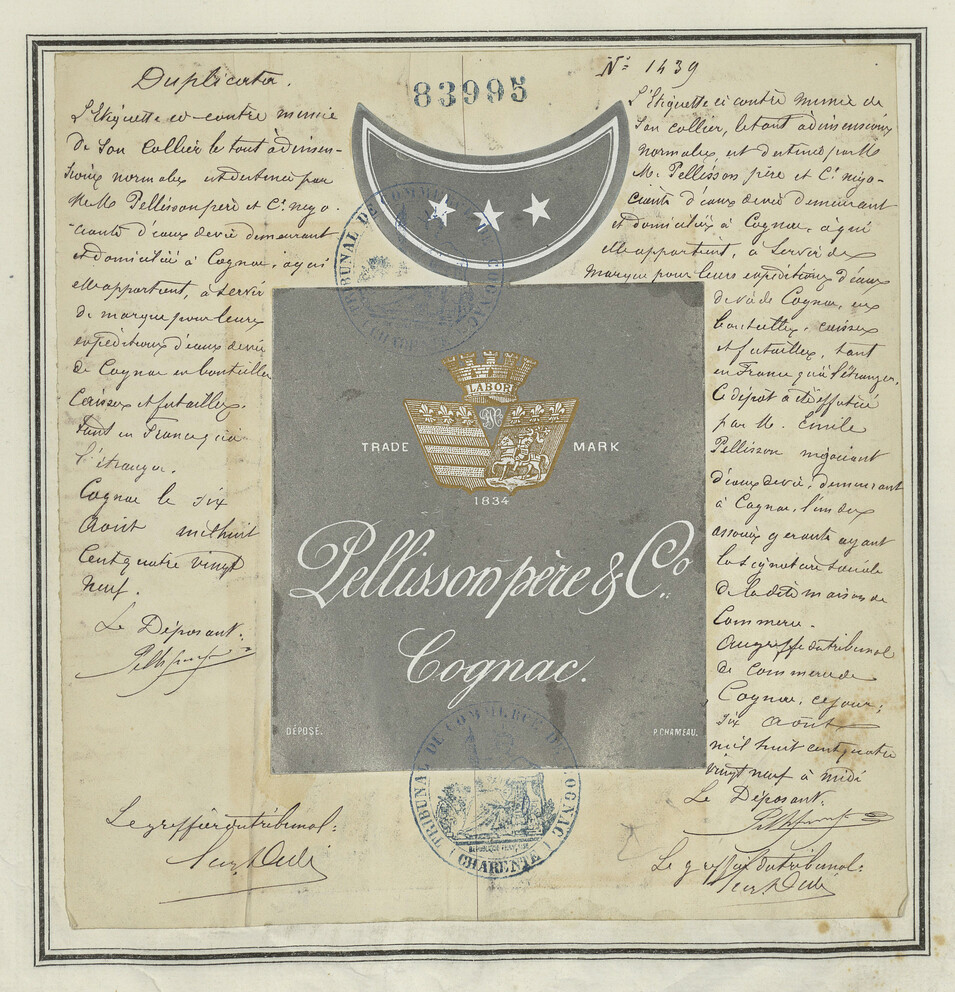 Duplicata.
L'Etiquette ci-contre munie
de son collier le tout à dimen-
sions normales est destinée par
MM. Pellisson père et Cie négo-
ciants d'eaux de vie demeurant
et domiciliés à Cognac, à qui
elle appartient, à servir
de marque pour leurs
expéditions d'eaux de vie
de Cognac en bouteilles
Caisses et futailles.
tant en France qu'à
l'étranger.
Cognac le six
Août mil huit
Cent quatre vingt
Neuf.
Le Déposant.
Le greffier du tribunal:
83995
TRIBUNAL DE COMMERCE DE COGNAC
CHARENTE
LABOR
TRADE MARK
1834
Pellisson père & Co.
Cognac.
DÉPOSÉ.
P. CHAMEAU.
TRIBUNAL DE COMMERCE DE COGNAC
REPUBLIQUE FRANÇAISE
(CHARENTE)
No 1439
L'Etiquette ci contre munie de
son collier, le tout à dimensions
normales, est destinée par M
M. Pellisson père et Cie négo-
ciants d'eaux de vie demeurant
et domiciliés à Cognac, à qui
elle appartient, à servir de
marque pour leurs expéditions d'eaux
de vie de Cognac, en
bouteilles, caisses
et futailles, tant
en France qu'à l'étranger.
Ce dépôt a été effectué
par M. Emile
Pellisson négociant
d'eaux de vie, demeurant
à Cognac, l'un des
associés gérants ayant
la signature sociale
de la dite maison de
Commerce.
Au greffe du tribunal
de Commerce de
Cognac, ce jour,
six Août
mil huit cent quatre
vingt neuf à midi
Le Déposant.
Le greffier du tribunal: